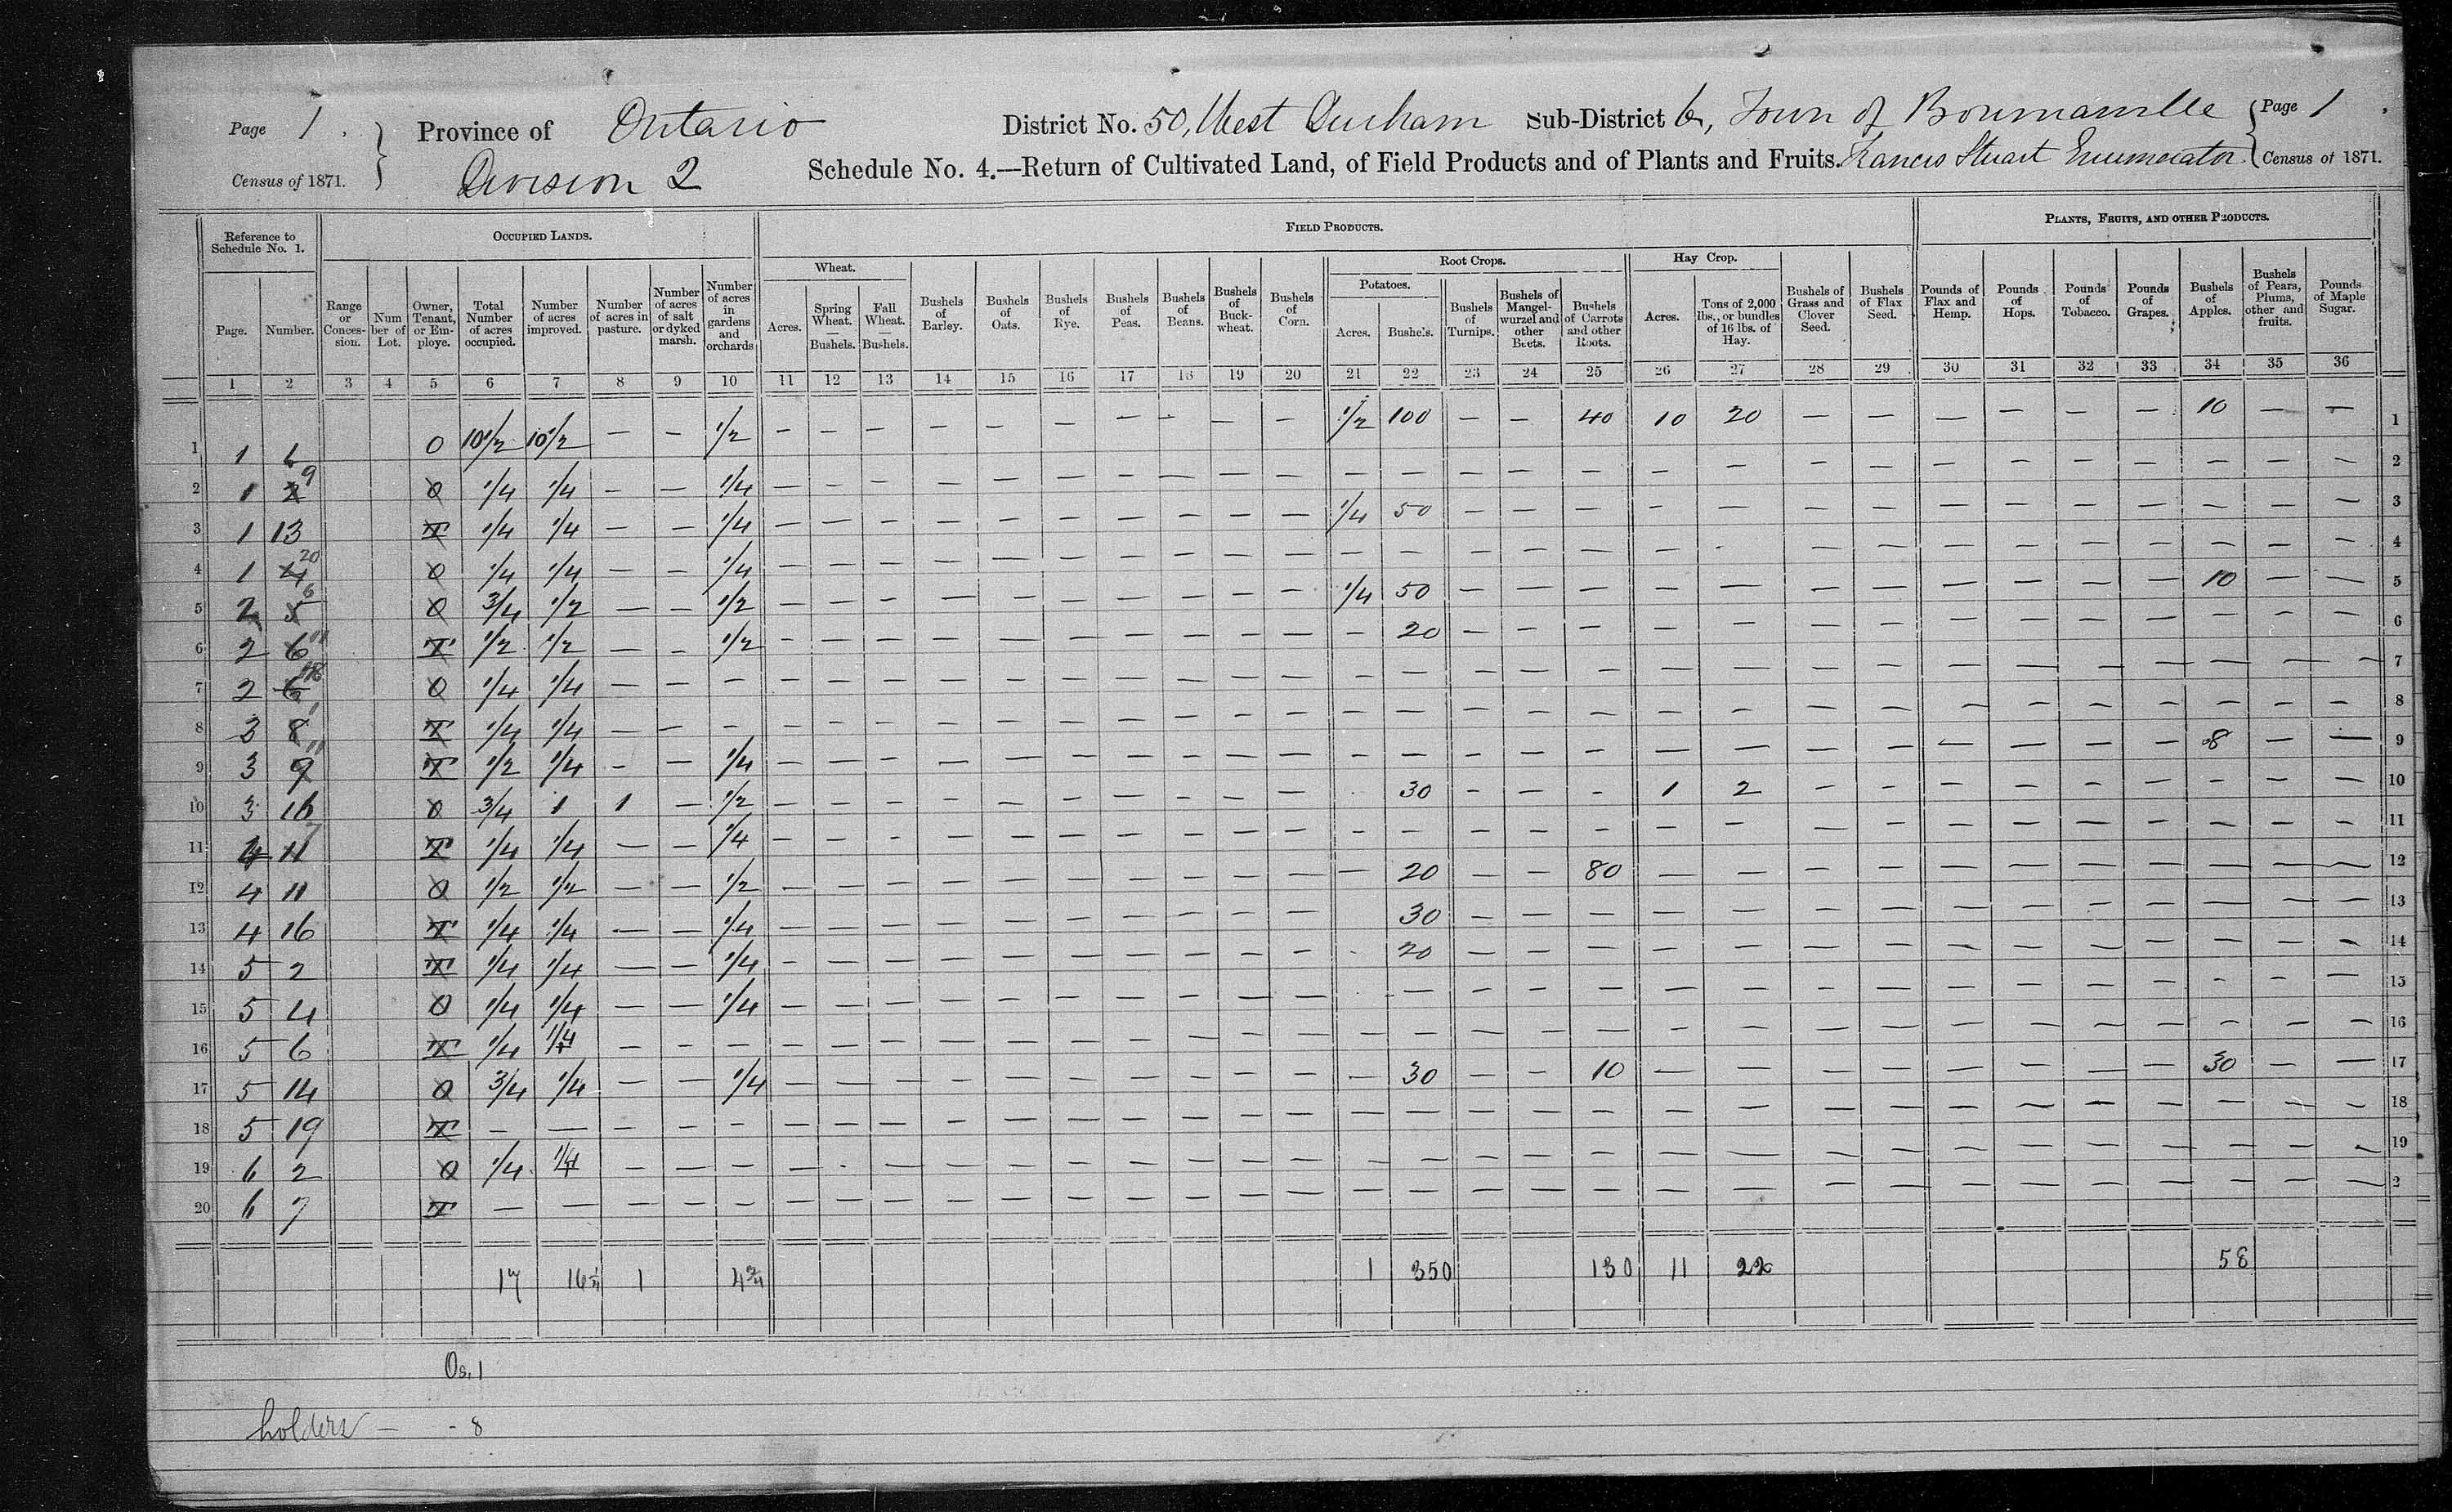 Page 1. Province of Ontario District No. 50, West Durham Sub-District 6, Town of Bowmanville Page 1.
Census of 1871. Division 2 Schedule No. 4.—Return of Cultivated Land, of Field Products and of Plants and Fruits. Francis Stuart Enumerator. Census of 1871.
Reference to Schedule No. 1. OCCUPIED LANDS. FIELD PRODUCTS. PLANTS, FRUITS, AND OTHER PRODUCTS.
Wheat. Root Crops. Hay Crop.
Potatoes.
Page. Number. Range or Conces- sion. Num ber of Lot. Owner, Tenant, or Em- ploye. Total Number of acres occupied. Number of acres improved. Number of acres in pasture. Number of acres of salt or dyked marsh. Number of acres in gardens and orchards Acres. Spring Wheat. — Bushels. Fall Wheat. — Bushels. Bushels of Barley. Bushels of Oats. Bushels of Rye. Bushels of Peas. Bushels of Beans. Bushels of Buck- wheat. Bushels of Corn. Acres. Bushels. Bushels of Turnips. Bushels of Mangel- wurzel and other Beets. Bushels of Carrots and other Roots. Acres. Tons of 2,000 lbs., or bundles of 16 lbs. of Hay. Bushels of Grass and Clover Seed. Bushels of Flax Seed. Pounds of Flax and Hemp. Pounds of Hops. Pounds of Tobacco. Pounds of Grapes. Bushels of Apples. Bushels of Pears, Plums, other and fruits. Pounds of Maple Sugar.
1 2 3 4 5 6 7 8 9 10 11 12 13 14 15 16 17 18 19 20 21 22 23 24 25 26 27 28 29 30 31 32 33 34 35 36
1 1 6 O 10 1/2 10 1/2 — — 1/2 — — — — — — — — — — 1/2 100 — — 40 10 20 — — — — — — 10 — — 1
2 1 2 9 O 1/4 1/4 — — 1/4 — — — — — — — — — — — — — — — — — — — — — — — — — — 2
3 1 13 T 1/4 1/4 — — 1/4 — — — — — — — — — — 1/4 50 — — — — — — — — — — — — — — 3
4 1 4 20 O 1/4 1/4 — — 1/4 — — — — — — — — — — — — — — — — — — — — — — — — — — 4
5 2 5 6 O 3/4 1/2 — — 1/2 — — — — — — — — — — 1/4 50 — — — — — — — — — — — 10 — — 5
6 2 6 11 T 1/2 1/2 — — 1/2 — — — — — — — — — — — 20 — — — — — — — — — — — — — — 6
7 2 6 18 O 1/4 1/4 — — — — — — — — — — — — — — — — — — — — — — — — — — — — — 7
8 3 8 1 T 1/4 1/4 — — — — — — — — — — — — — — — — — — — — — — — — — — — — — 8
9 3 9 11 T 1/2 1/4 — — 1/4 — — — — — — — — — — — — — — — — — — — — — — — 8 — — 9
10 3 16 O 3/4 1 1 — 1/2 — — — — — — — — — — 30 — — — 1 2 — — — — — — — — — 10
11 4 11 7 T 1/4 1/4 — — 1/4 — — — — — — — — — — — — — — — — — — — — — — — — — — 11
12 4 11 O 1/2 1/2 — — 1/2 — — — — — — — — — — — 20 — — 80 — — — — — — — — — — — 12
13 4 16 T 1/4 1/4 — — 1/4 — — — — — — — — — — 30 — — — — — — — — — — — — — — 13
14 5 2 T 1/4 1/4 — — 1/4 — — — — — — — — — — 20 — — — — — — — — — — — — — — 14
15 5 4 O 1/4 1/4 — — 1/4 — — — — — — — — — — — — — — — — — — — — — — — — — 15
16 5 6 T 1/4 1/4 — — — — — — — — — — — — — — — — — — — — — — — — — — — — — 16
17 5 14 O 3/4 1/4 — — 1/4 — — — — — — — — — — — 30 — — 10 — — — — — — — — 30 — — 17
18 5 19 T — — — — — — — — — — — — — — — — — — — — — — — — — — — — — — — 18
19 6 2 O 1/4 1/4 — — — — — — — — — — — — — — — — — — — — — — — — — — — — — 19
20 6 7 T — — — — — — — — — — — — — — — — — — — — — — — — — — — — — — — 2
17 16 1/4 1 4 3/4 1 350 130 11 22 58
Os. 1
holders — - 8